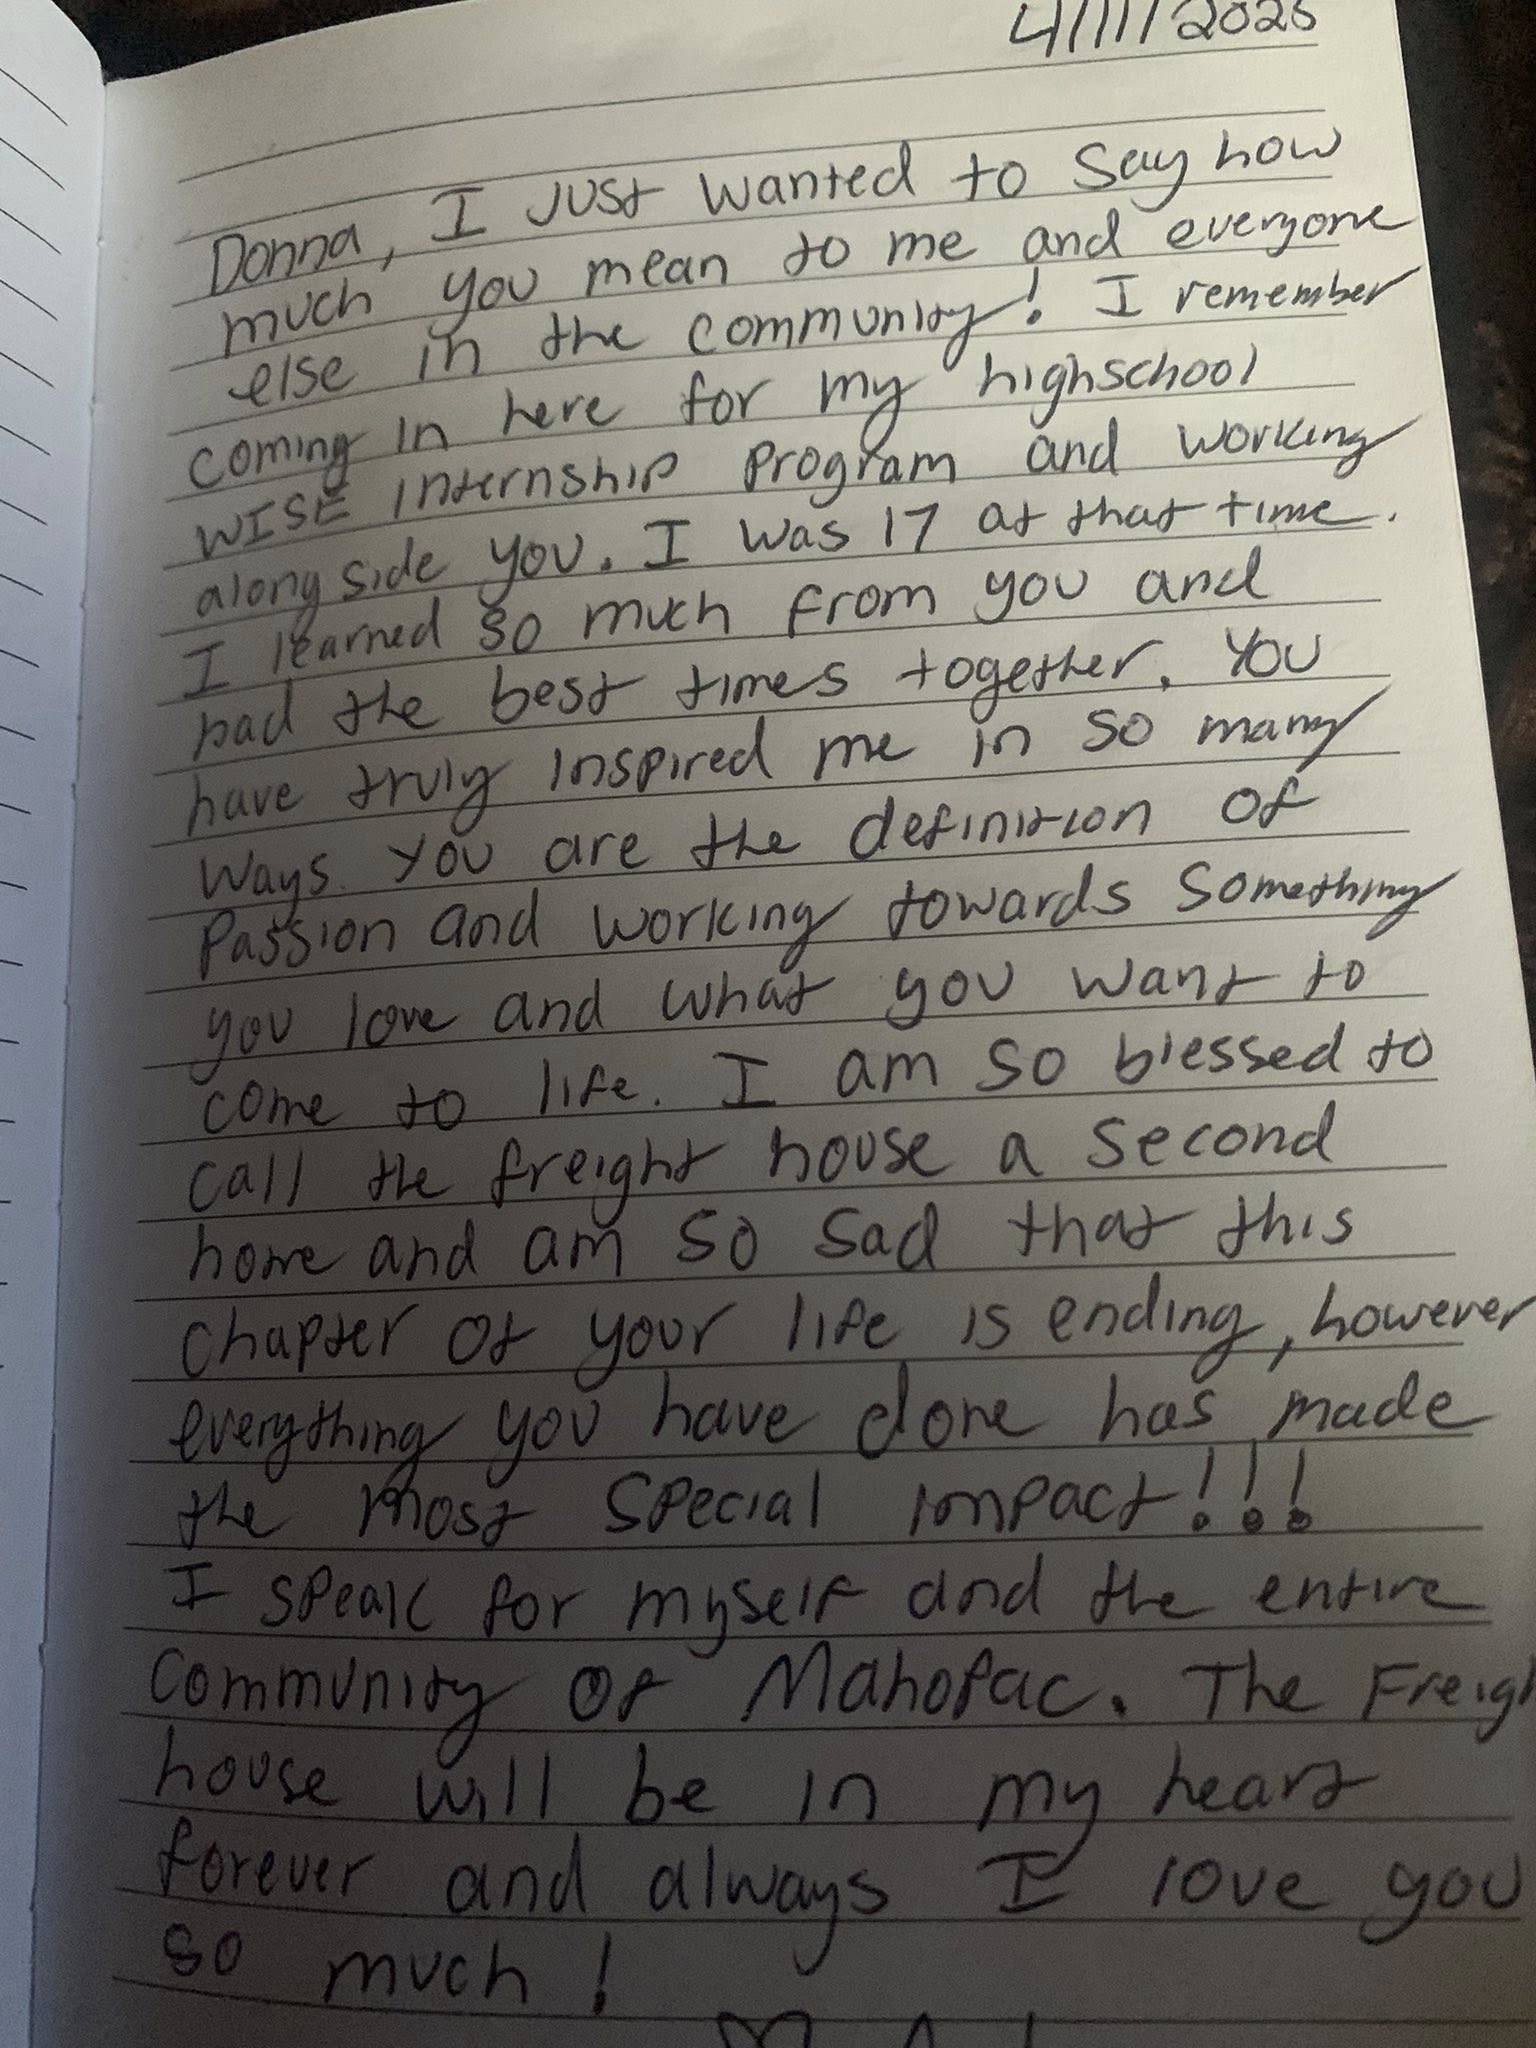 4/11/2025
Donna, I JUST wanted to say how
much you mean to me and everyone
else in the community! I remember
coming in here for my highschool
WISE internship program and working
along side you. I was 17 at that time.
I learned so much from you and
had the best times together. You
have truly inspired me in so many
ways. You are the definition of
passion and working towards something
you love and what you want to
come to life. I am so blessed to
call the freight house a second
home and am so sad that this
chapter of your life is ending, however
everything you have done has made
the most special impact!!!
I speak for myself and the entire
community of Mahopac. The Freigh
house will be in my heart
forever and always I love you
so much!